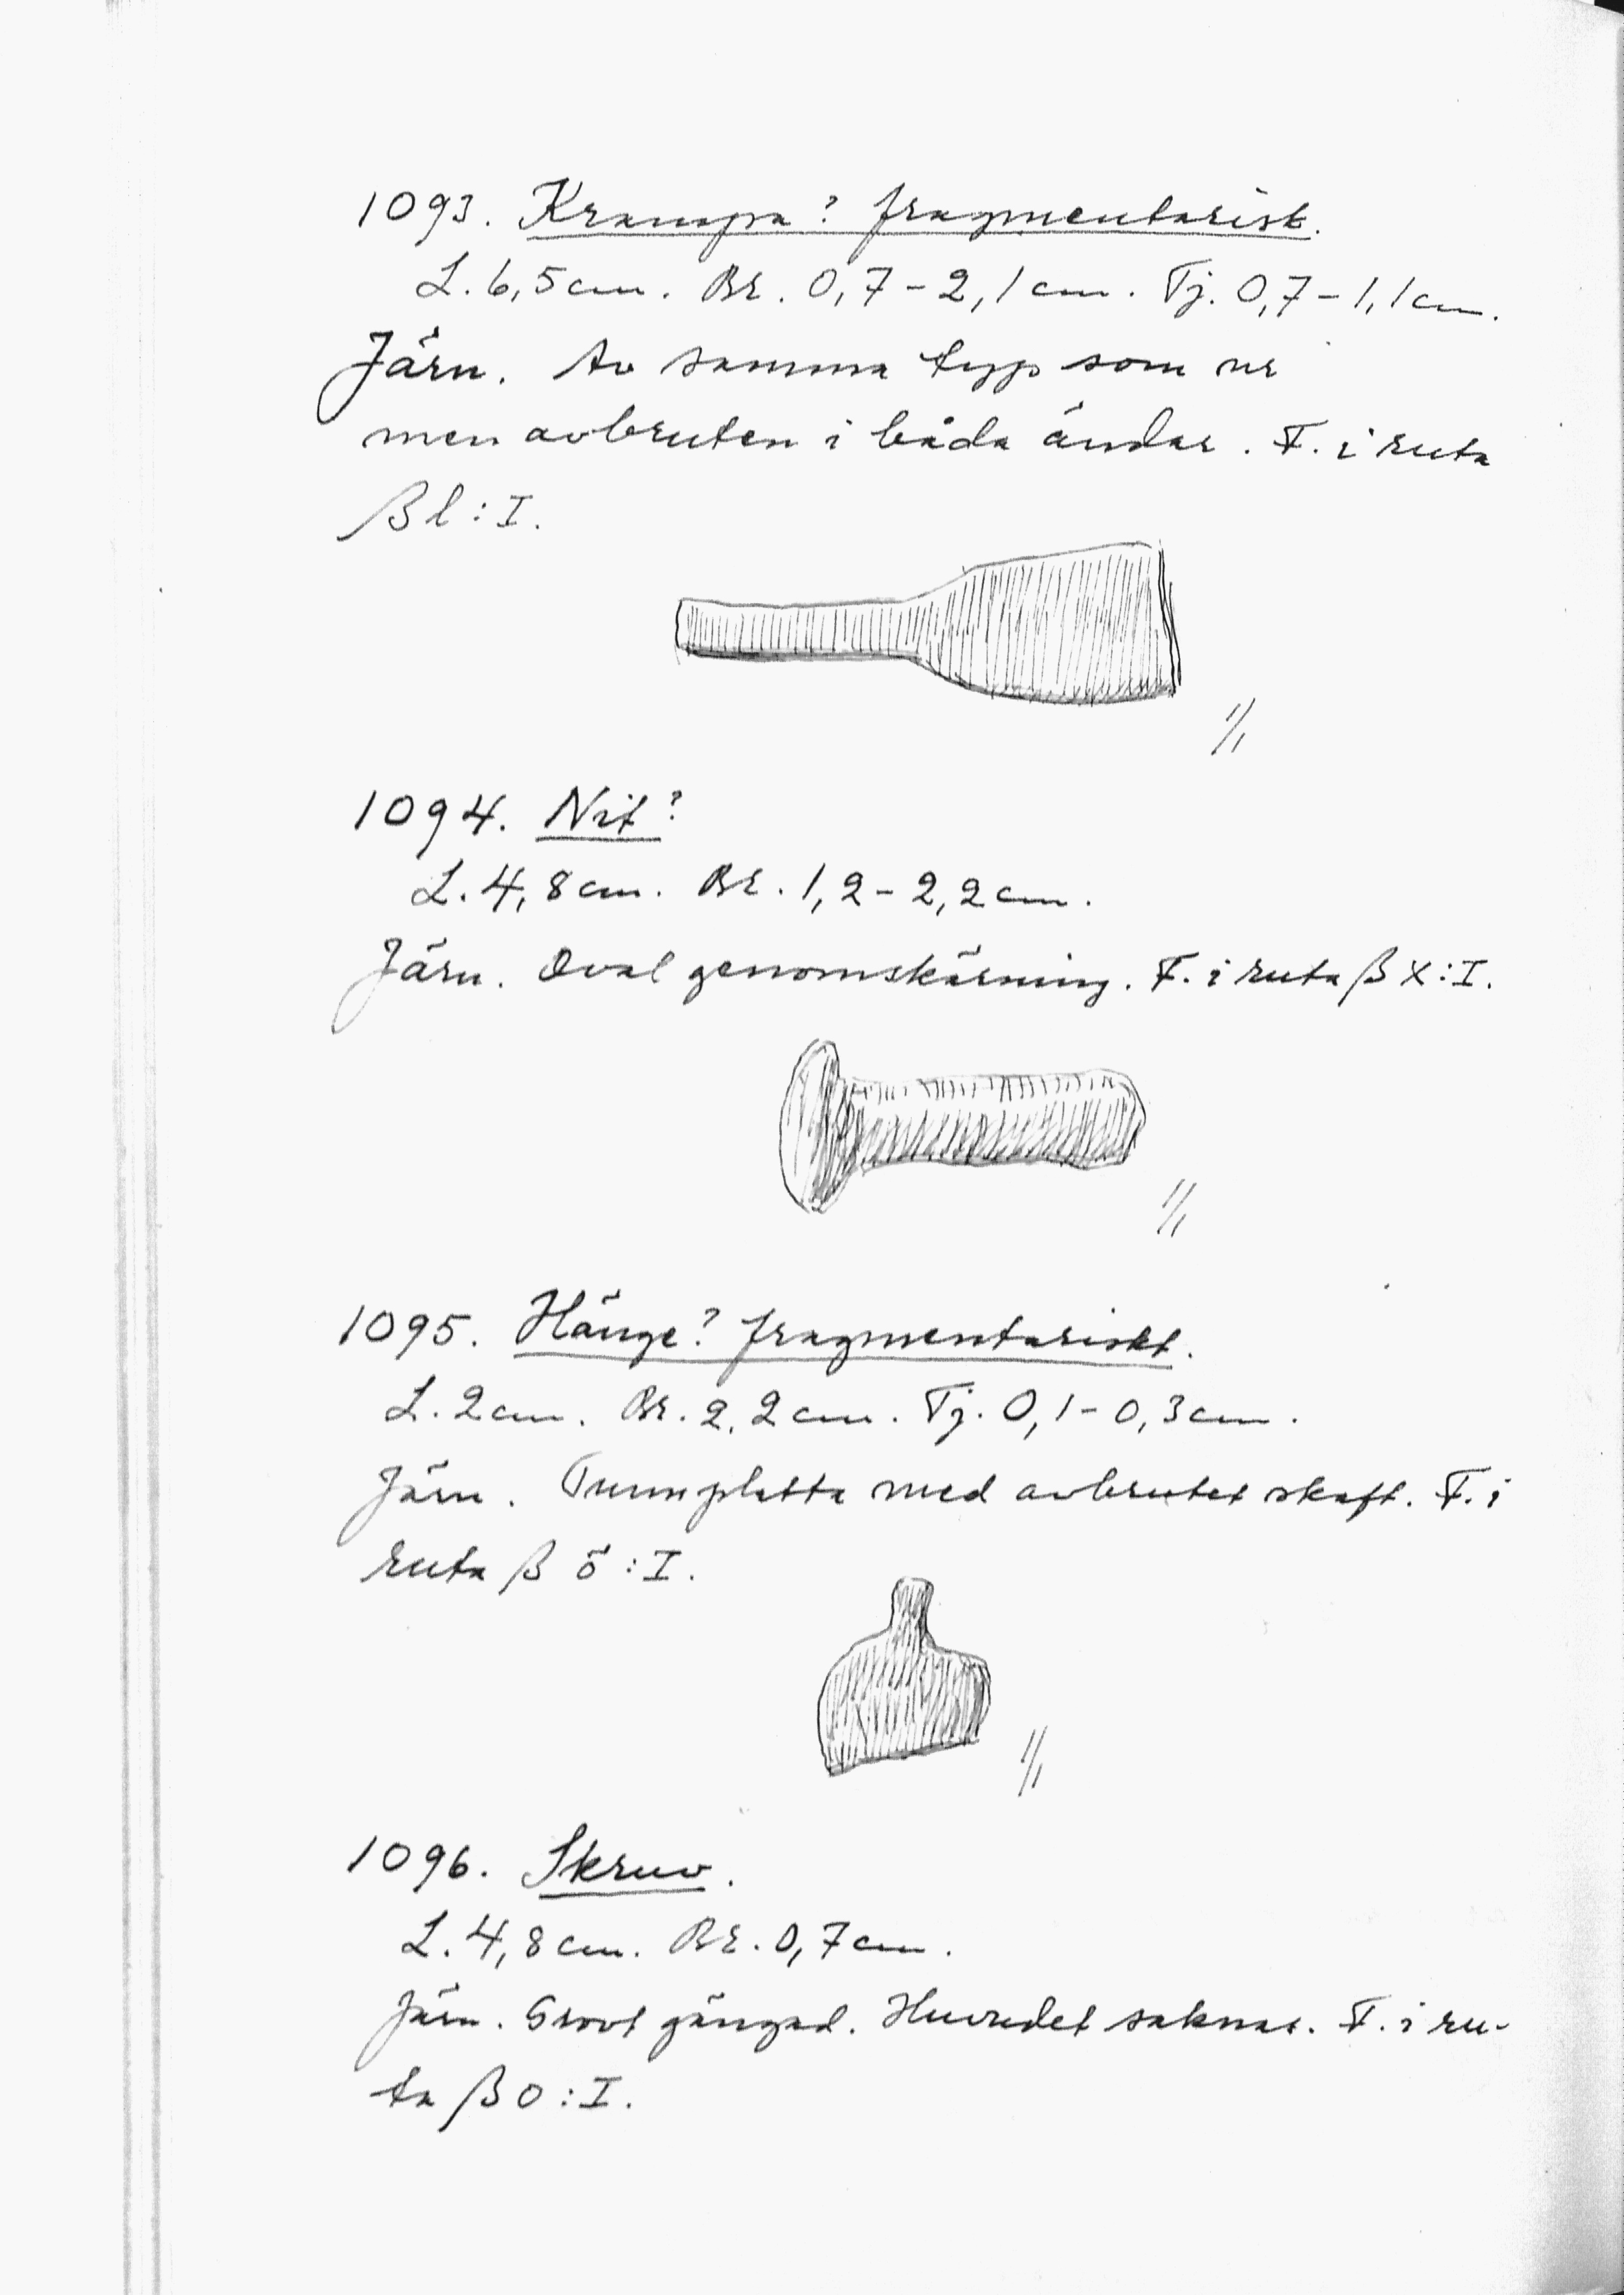 1093. Krampa? fragmentarisk.
L. 6,5 cm. Br. 0,7-2,1 cm. Tj. 0,7-1,1 cm.
Järn. Av samma typ som nr
men avbruten i båda ändar. F. i ruta
ßl:I.
1/1
1094. Nit?
L. 4,8 cm. Br. 1,2-2,2 cm.
Järn. Oval genomskärning. F. i ruta ß X:I.
1/1
1095. Hänge? fragmentariskt.
L. 2 cm. Br. 2,2 cm. Tj. 0,1-0,3 cm.
Järn. Tunn platta med avbrutet skaft. F. i
ruta ß ö:I.
1/1
1096. Skruv.
L. 4,8 cm. Br. 0,7 cm.
Järn. Grovt gängad. Huvudet saknas. F. i ru-
ta ß o:I.